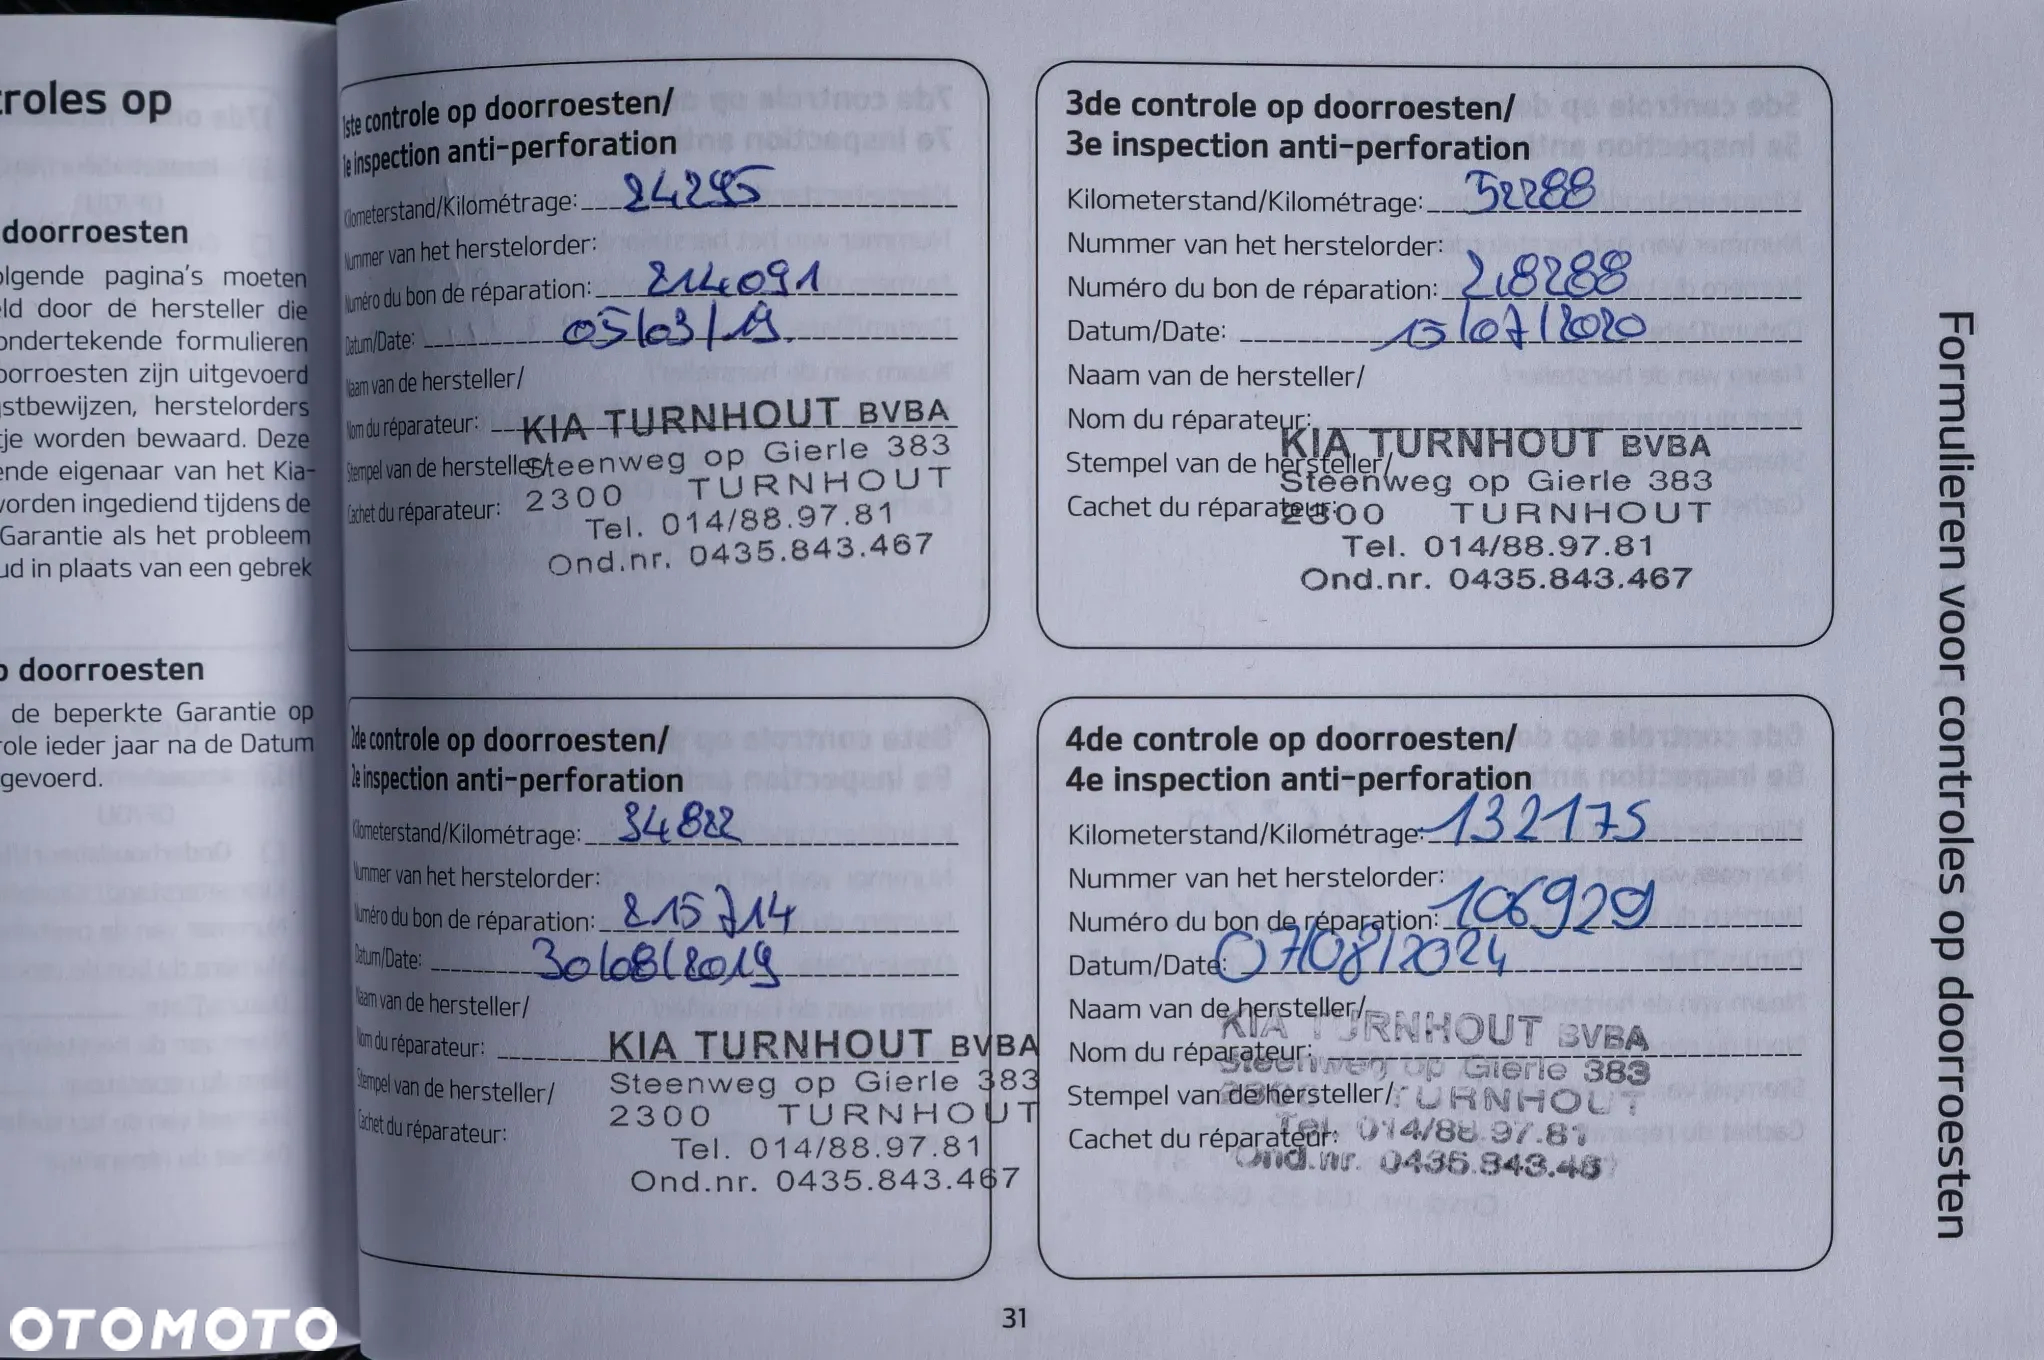 roles op
doorroesten
lgende pagina's moeten
ld door de hersteller die
ondertekende formulieren
oorroesten zijn uitgevoerd
stbewijzen, herstelorders
je worden bewaard. Deze
ende eigenaar van het Kia-
orden ingediend tijdens de
Garantie als het probleem
ud in plaats van een gebrek
doorroesten
de beperkte Garantie op
ole ieder jaar na de Datum
gevoerd.
1ste controle op doorroesten/
1e inspection anti-perforation
Kilometerstand/Kilométrage: 24295
Nummer van het herstelorder:
Numéro du bon de réparation: 214091
Datum/Date: 05/03/19
Naam van de hersteller/
Nom du réparateur: KIA TURNHOUT BVBA
Stempel van de hersteller/ Steenweg op Gierle 383
Cachet du réparateur: 2300 TURNHOUT
Tel. 014/88.97.81
Ond.nr. 0435.843.467
2de controle op doorroesten/
2e inspection anti-perforation
Kilometerstand/Kilométrage: 34822
Nummer van het herstelorder:
Numéro du bon de réparation: 215714
Datum/Date: 30/08/2019
Naam van de hersteller/
Nom du réparateur: KIA TURNHOUT BVBA
Stempel van de hersteller/ Steenweg op Gierle 383
Cachet du réparateur: 2300 TURNHOUT
Tel. 014/88.97.81
Ond.nr. 0435.843.467
3de controle op doorroesten/
3e inspection anti-perforation
Kilometerstand/Kilométrage: 52288
Nummer van het herstelorder:
Numéro du bon de réparation: 218288
Datum/Date: 15/07/2020
Naam van de hersteller/
Nom du réparateur: KIA TURNHOUT BVBA
Stempel van de hersteller/ Steenweg op Gierle 383
Cachet du réparateur: 2300 TURNHOUT
Tel. 014/88.97.81
Ond.nr. 0435.843.467
4de controle op doorroesten/
4e inspection anti-perforation
Kilometerstand/Kilométrage: 132175
Nummer van het herstelorder:
Numéro du bon de réparation: 106929
Datum/Date: 07/08/2024
Naam van de hersteller/
KIA TURNHOUT BVBA
Nom du réparateur:
Steenweg op Gierle 383
Stempel van de hersteller/ 2300 TURNHOUT
Cachet du réparateur: Tel. 014/88.97.81
Ond.nr. 0435.843.467
Formulieren voor controles op doorroesten
31
OTOMOTO